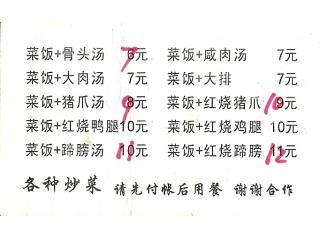 菜饭+骨头汤 6元 7 菜饭+咸肉汤 7元
菜饭+大肉汤 7元 菜饭+大排 7元
菜饭+猪爪汤 8元 9 菜饭+红烧猪爪 9元 10
菜饭+红烧鸭腿10元 菜饭+红烧鸡腿 10元
菜饭+蹄膀汤 10元 11 菜饭+红烧蹄膀 11元 12
各种炒菜 请先付帐后用餐 谢谢合作